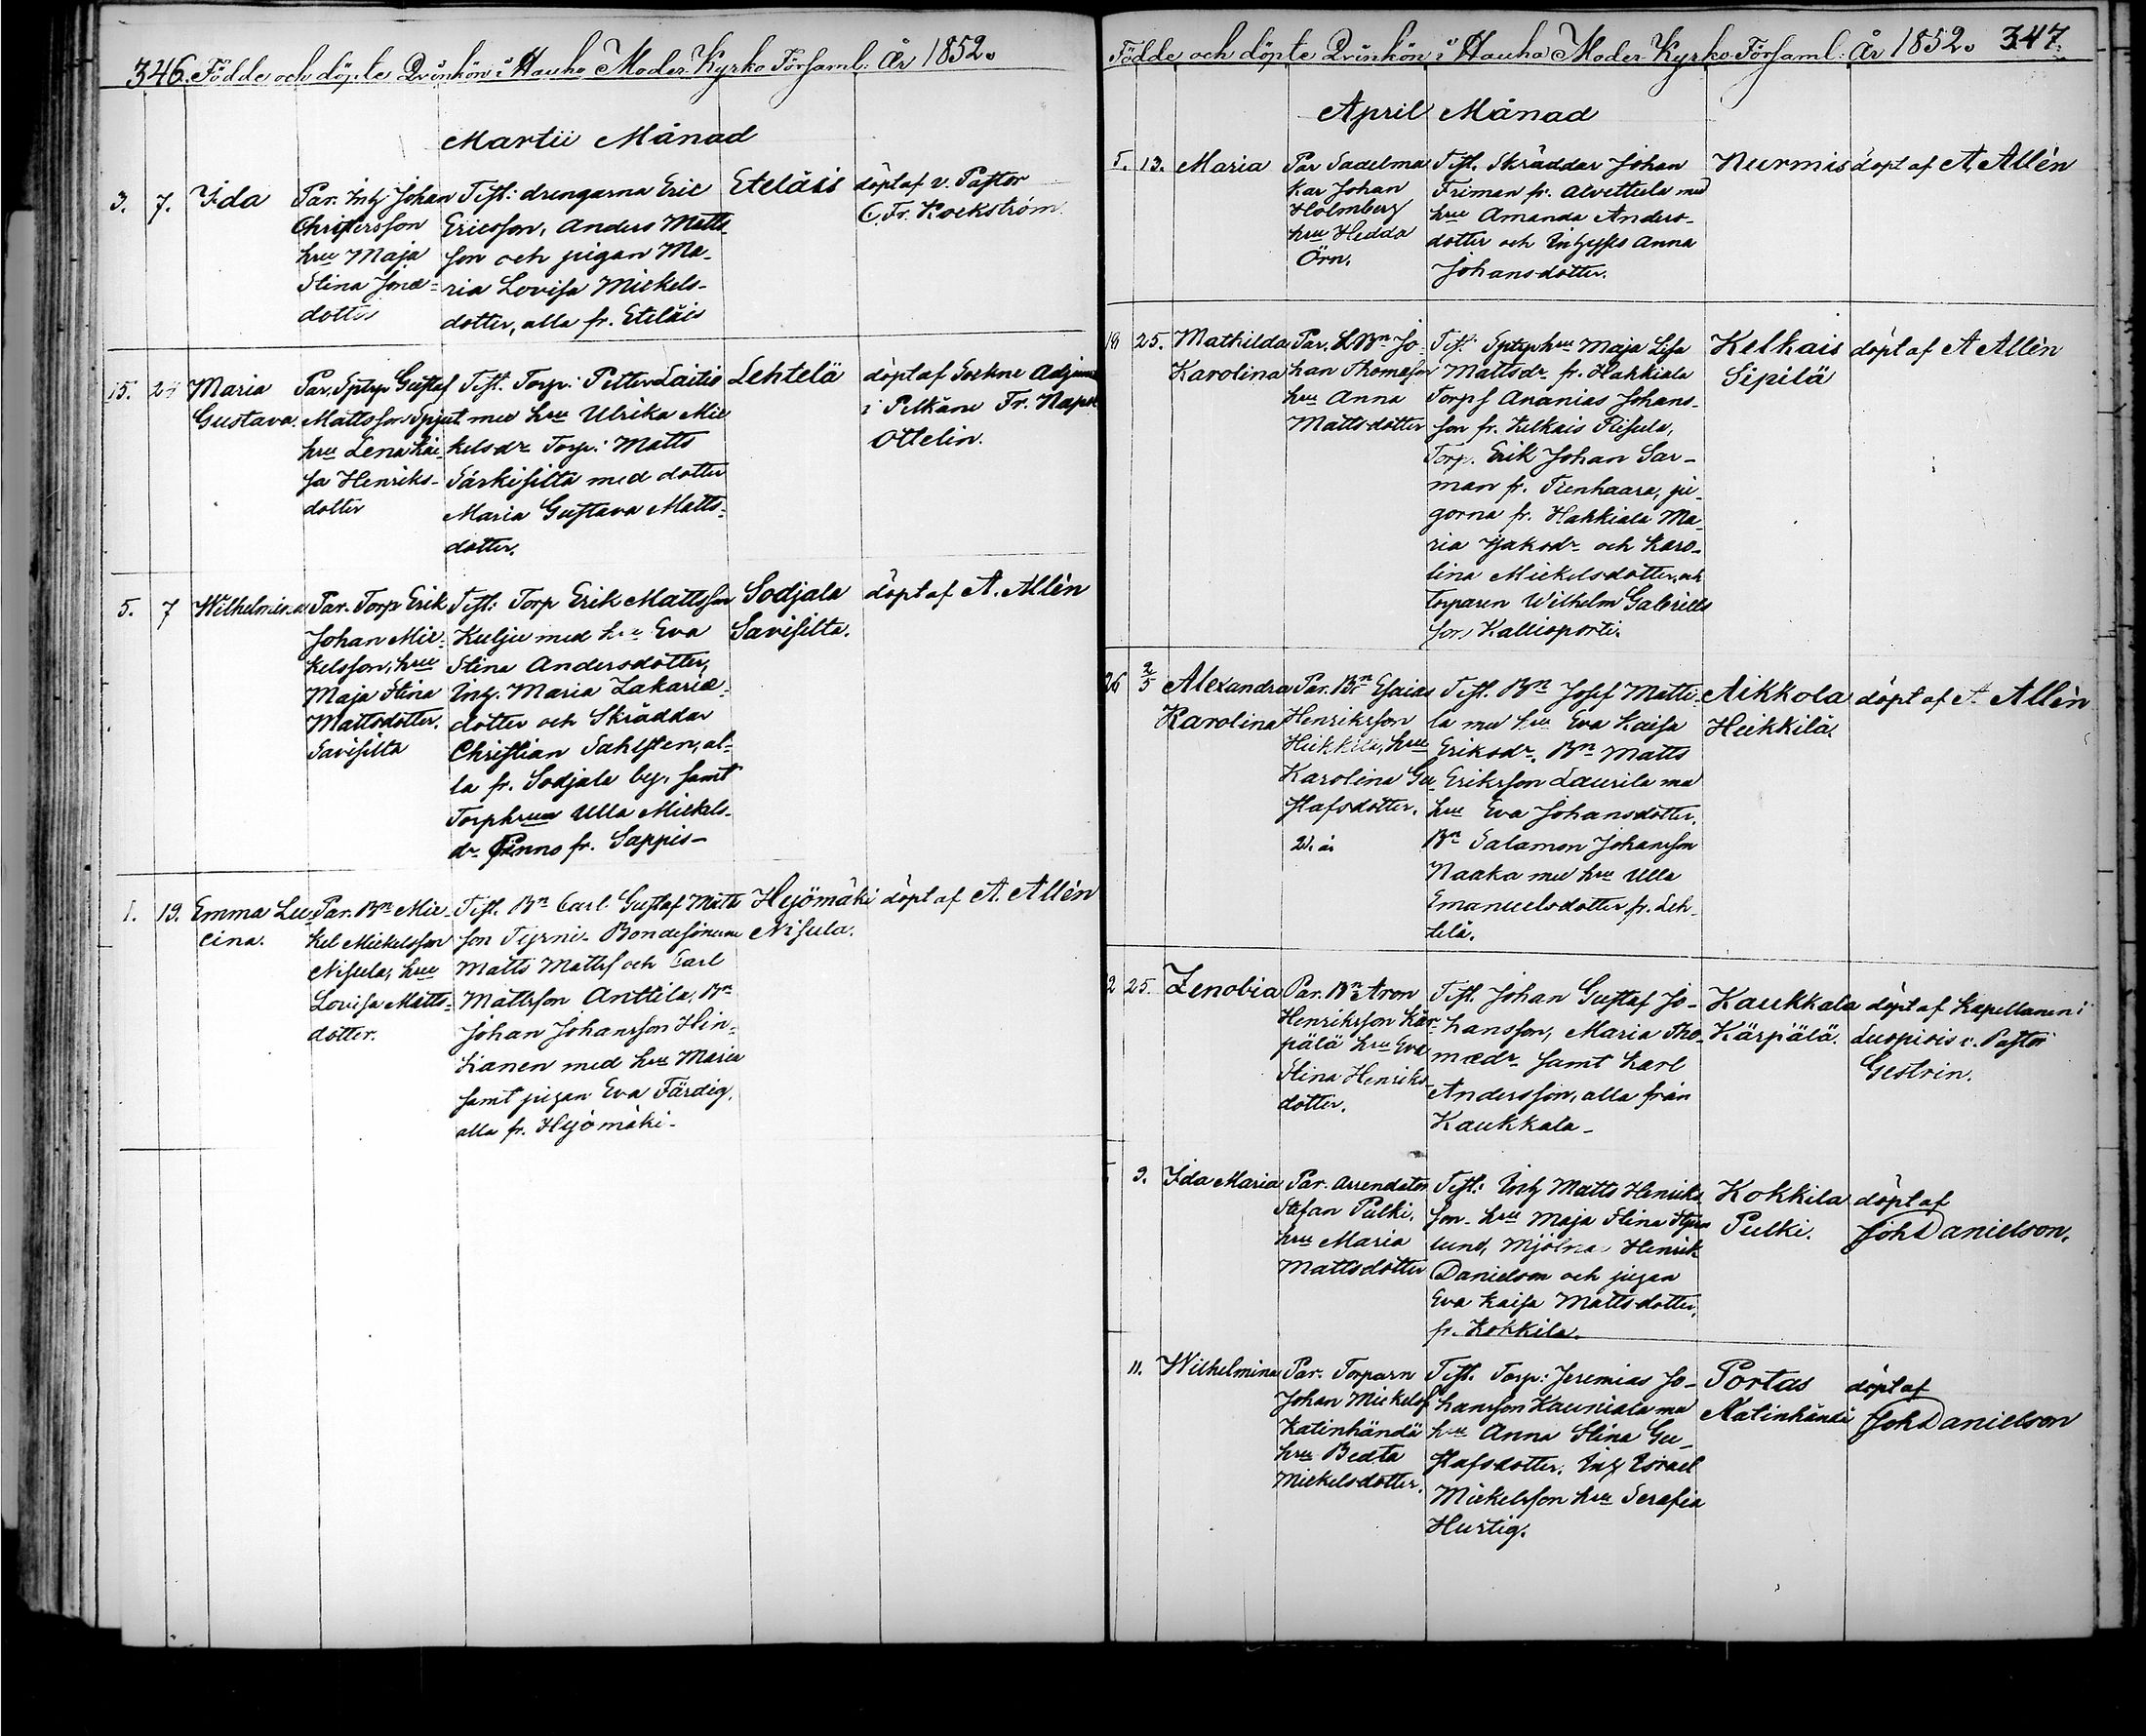 346. Födde och döpte Qvinkön i Hauho Moder-Kyrko Församl: År 1852.
Martii Månad
3. 7. Ida
Par. Inh Johan
Christersson
hru Maja
Stina Jonæ-
dotter
Test: drengarna Eric
Ericsson, Anders Matts-
son och pigan Ma-
ria Lovisa Mickels-
dotter, alla fr. Eteläis
Eteläis
döpt af v. Pastor
C. Fr. Kockström.
15. Maria
Gustava.
Par. Gustaf
Mattsson
hru Lena Kai-
sa Henriks-
dotter
Test. Torp: Petter Laitis
med hru Ulrika Mic
kelsdr Torp: Matts
Särkisilta med dotter
Maria Gustava Matts-
dotter.
Lehtelä
döpt af Sockne
i Pelkäne Fr.
Ottelin.
5. 7 Wilhelmina
Par. Torp Erik
Johan Mic-
kelsson, hru
Maja Stina
Mattsdotter.
Savisilta
Test: Torp Erik Mattsson
Kulju med hru Eva
Stina Andersdotter,
Inh. Maria Zakariæ-
dotter och Skräddar
Christian Sahlsten, al-
la fr. Sodjala by, samt
Torphrun Ulla Mickels-
dr Finno fr. Sappis-
Sodjala
Savisilta.
döpt af A. Allèn
1. 19. Emma Lu-
cina.
Par. Bn Mic-
kel Mickelsson
Nisula, hru
Lovisa Matts-
dotter.
Test. Bn Carl Gustaf Matts
son Tyrni- Bondesönerne
Matts Mattss och Carl
Mattsson Anttila, Bn
Johan Johansson Hin-
kanen med hru Maria
samt pigan Eva Färdig,
alla fr. Hyömäki-
Hyömäki
Nisula.
döpt af A. Allèn
Födde och döpte Qvinkön i Hauho Moder-Kyrko-Församl: År 1852. 347.
April Månad
5. 13. Maria
Par Sadelma
kar Johan
Holmberg
hru Hedda
Örn.
Test. Skräddar Johan
Friman fr. Alvettula med
hru Amanda Anders-
dotter och Anna
Johansdotter.
Nurmis
döpt af A. Allèn
18 25. Mathilda
Karolina
Par. Jo-
han Thomasson
hru Anna
Mattsdotter
Test: Maja Lisa
Mattsdr fr. Hakkiala
Torps Ananias Johans-
son fr. Kelkais
Torp. Erik Johan Sar-
man fr. Tienhaara, pi-
gorna fr. Hakkiala Ma-
ria Jakodr och Karo-
lina Mickelsdotter, och
torparen Wilhelm Gabriels
son Kallioportti.
Kelkais
Sipilä
döpt af A Allèn
26 2/5 Alexandra
Karolina
Par. Bn Esaias
Henriksson
Heikkilä, hru
Karolina Gu-
stafsdotter.
Test. Bn Josef Matti-
la med hru Eva Kaisa
Eriksdr, Bn Matts
Eriksson Laurila med
hru Eva Johansdotter.
Bn Salamon Johansson
Naaka med hru Ulla
Emanuelsdotter fr. Leh-
telä.
Aikkola
Heikkilä.
döpt af A. Allèn
2 25. Zenobia
Par. Bn Aron
Henriksson Kär-
pälä hru Eva
Stina Henriks-
dotter.
Test. Johan Gustaf Jo-
hansson, Maria Tho-
mædr samt Karl
Andersson, alla från
Kaukkala-
Kaukkala
Kärpälä.
döpt af Kapellanen i
Luopiois v. Pastor
Gestrin.
9. Ida Maria
Par. Arrendator
Stefan Pulki,
hru Maria
Mattsdotter
Test: Inh Matts Henriks
son- hru Maja Stina
lund, Mjölna. Henrik
Danielson och pigan
Eva Kaisa Mattsdotter,
fr. Kokkila.
Kokkila
Pulki.
döpt af
Joh Danielson.
11. Wilhelmina
Par. Torparn
Johan Mickelss
Katinhändä
hru Bedta
Mickelsdotter.
Test. Torp: Jeremias Jo-
hansson Kauniala med
hru Anna Stina Gu-
stafsdotter. Inh Israel
Mickelsson hru Serafia
Hurtig.
Portas
Katinhändä
döpt af
Joh Danielson